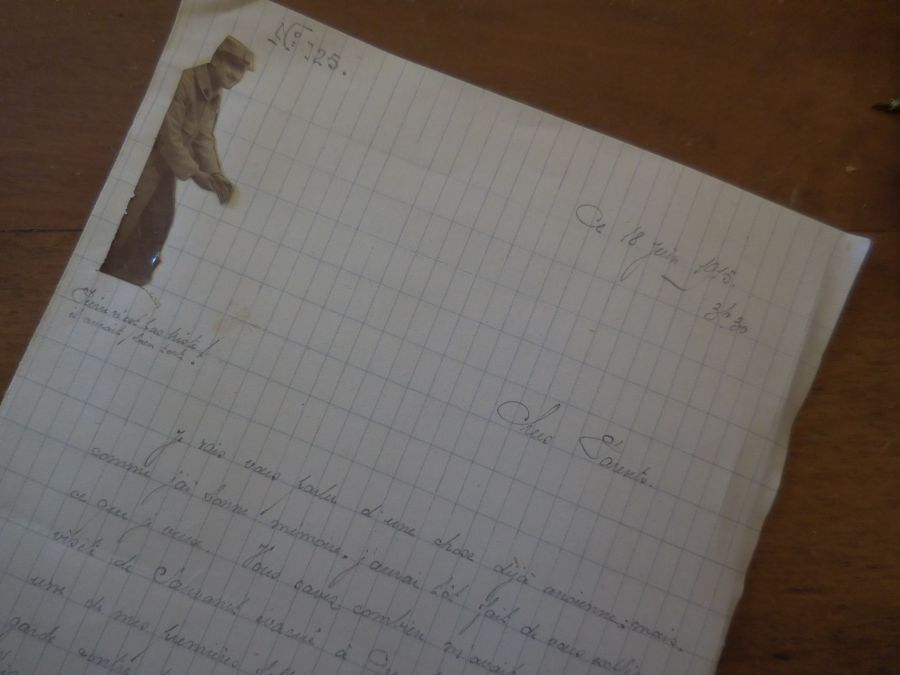 N° 125.
Ce 18 Juin 1915.
3h 30
n'est pas triste!
il aurait bien tort!
Chers Parents.
Je vais vous parler d'une chose déjà ancienne; mais
comme j'ai bonne mémoire, j'aurai tôt fait de vous
ce que je veux. Vous savez combien m'avait
visite de à
une de mes premières
garde